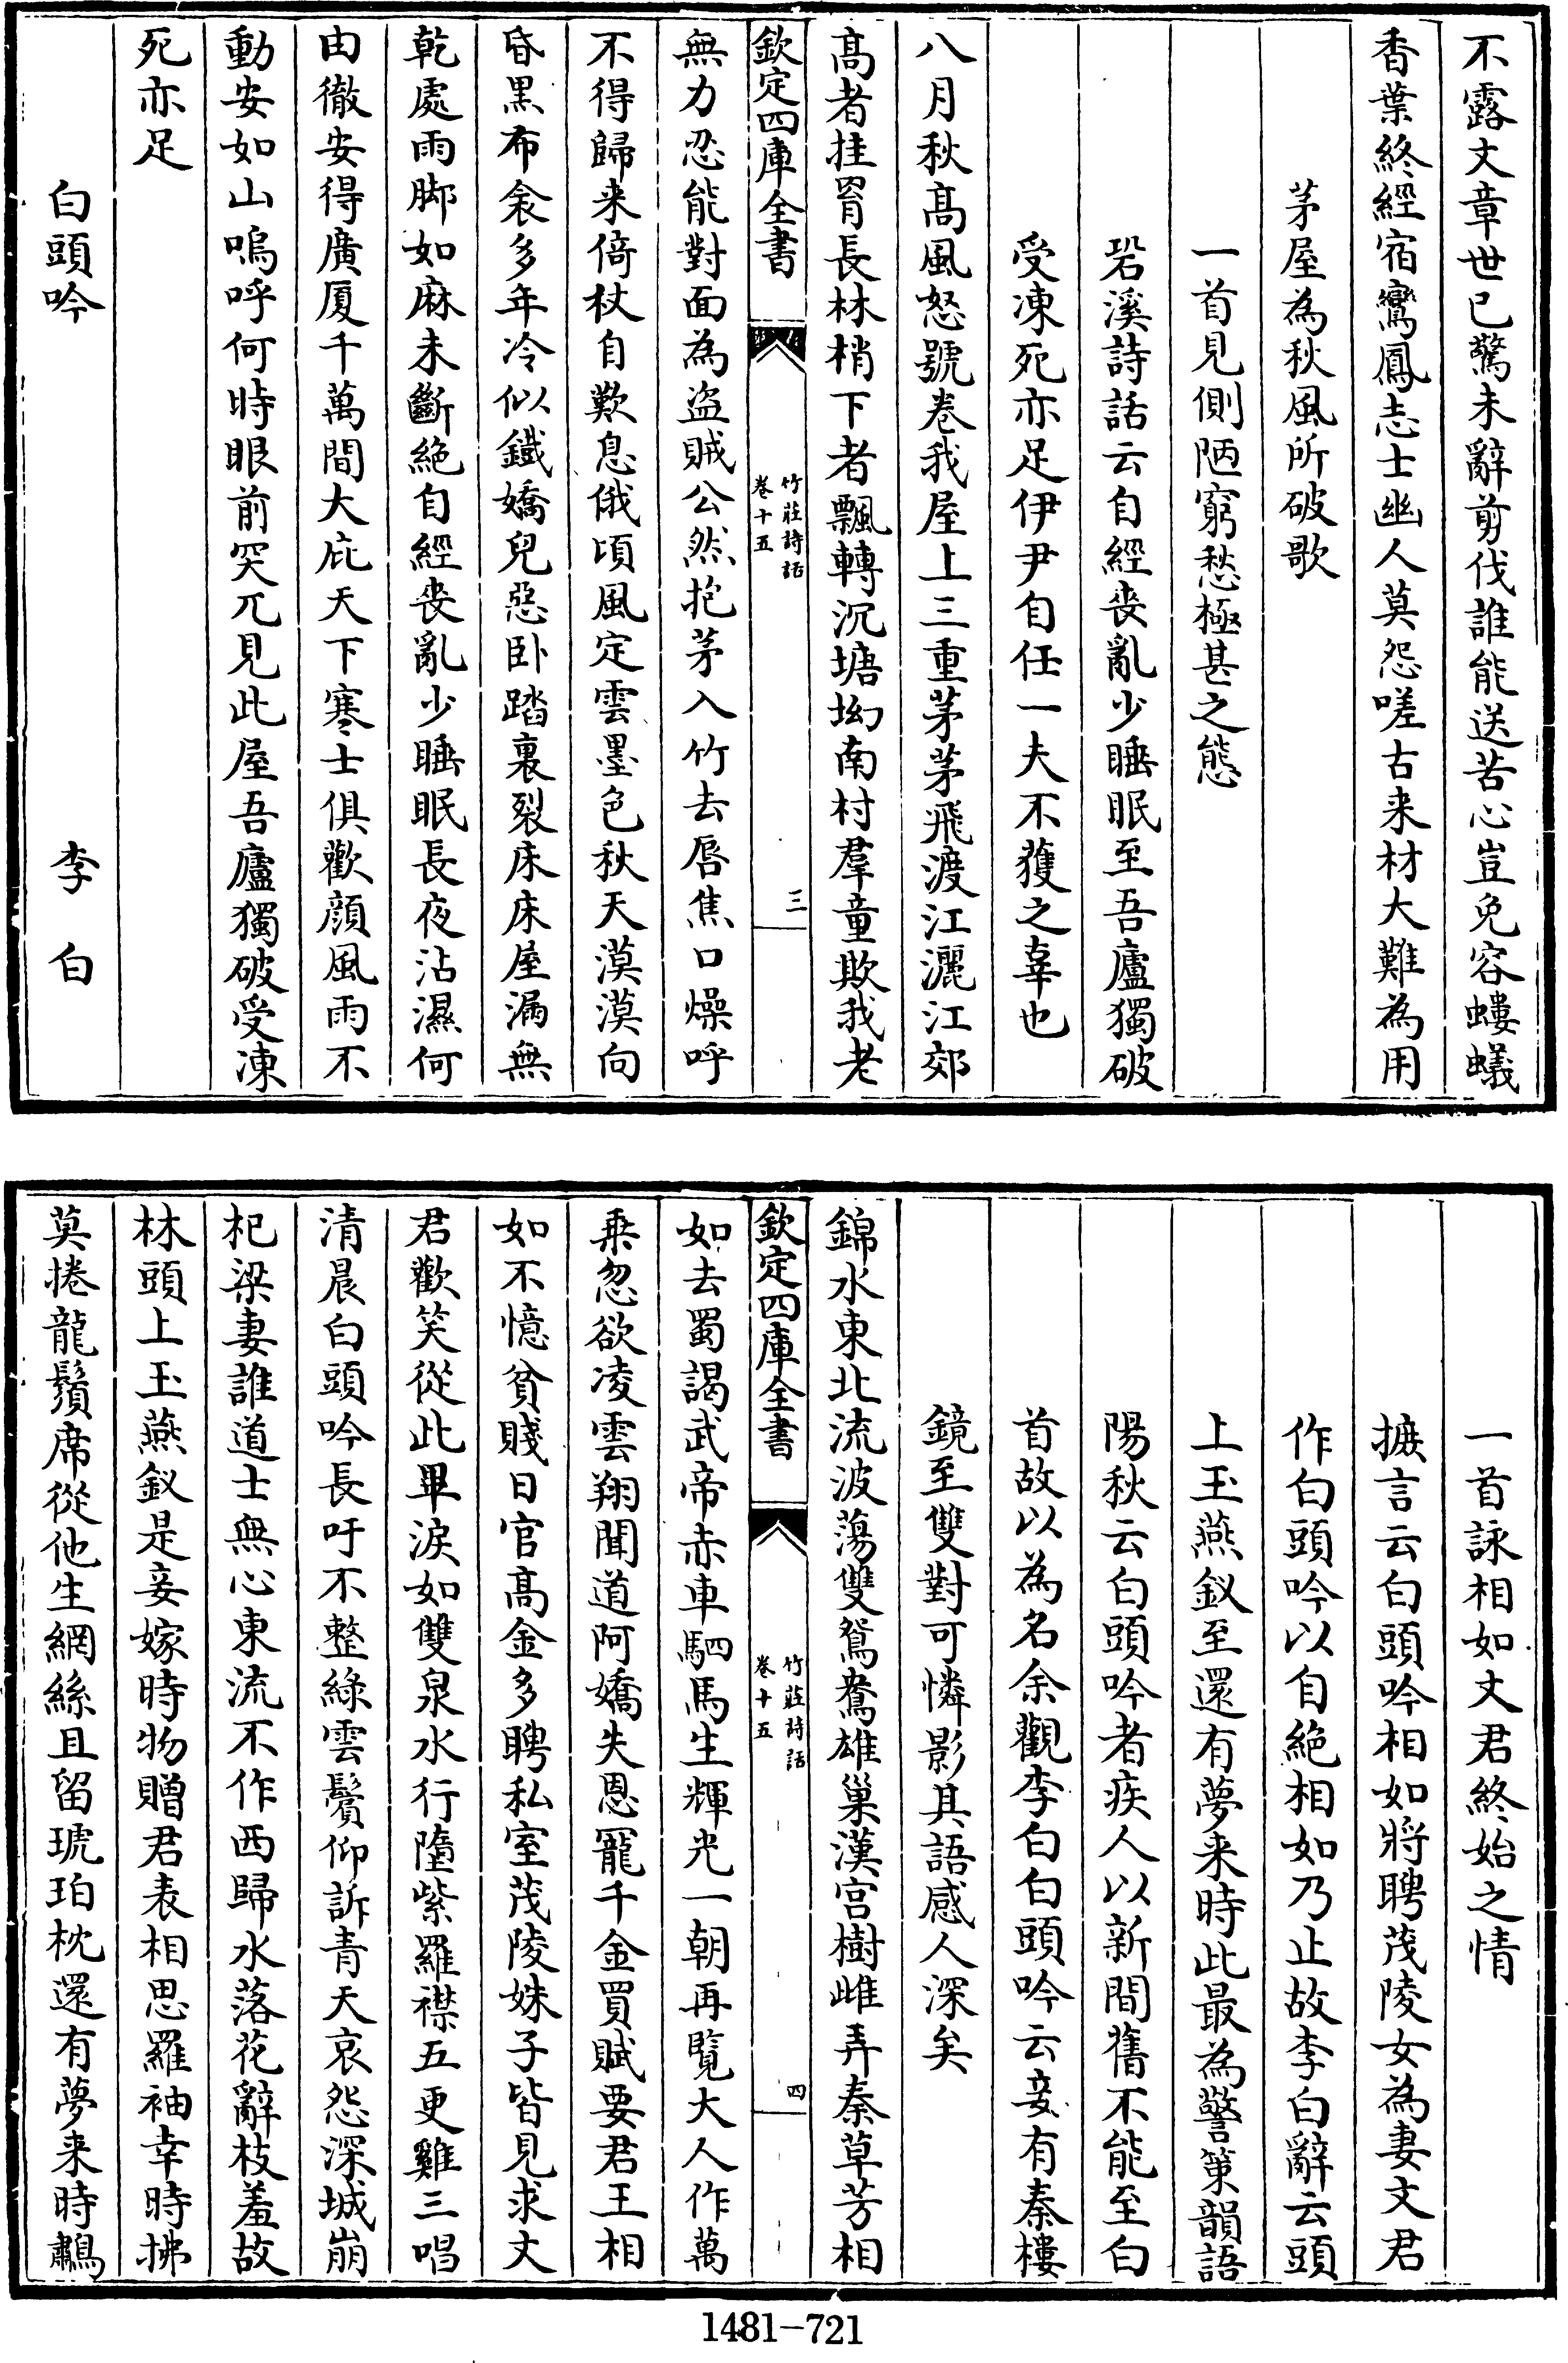 不露文章世已驚未辭剪伐誰能送苦心豈免容螻蟻
香葉終經宿鸞鳳志士幽人莫怨嗟古来材大難為用
茅屋為秋風所破歌
一首見側陋窮愁極甚之態
䂬溪詩話云自經喪亂少睡眠至吾廬獨破
受凍死亦足伊尹自任一夫不獲之辜也
八月秋髙風怒號卷我屋上三重茅茅飛渡江灑江郊
髙者挂罥長林梢下者飄轉沉塘坳南村羣童欺我老
欽定四庫全書
竹莊詩話
卷十五
三
無力忍能對面為盜賊公然抱茅入竹去唇焦口燥呼
不得歸来倚杖自歎息俄頃風定雲墨色秋天漠漠向
昏黒布衾多年冷似鐵嬌兒惡卧踏裏裂床床屋漏無
乾處雨脚如麻未斷絶自經喪亂少睡眠長夜沾濕何
由徹安得廣厦千萬間大庇天下寒士俱歡顔風雨不
動安如山嗚呼何時眼前突兀見此屋吾廬獨破受凍
死亦足
白頭吟 李白
一首詠相如文君終始之情
摭言云白頭吟相如將聘茂陵女為妻文君
作白頭吟以自絶相如乃止故李白辭云頭
上玉燕釵至還有夢来時此最為警策韻語
陽秋云白頭吟者疾人以新間舊不能至白
首故以為名余觀李白白頭吟云妾有秦樓
鏡至雙對可憐影其語感人深矣
錦水東北流波蕩雙鴛鴦雄巢漢宫樹雌弄秦草芳相
欽定四庫全書
竹莊詩話
卷十五
四
如去蜀謁武帝赤車駟馬生輝光一朝再覧大人作萬
乗忽欲凌雲翔聞道阿嬌失恩寵千金買賦要君王相
如不憶貧賤日官髙金多聘私室茂陵姝子皆見求文
君歡笑從此畢淚如雙泉水行墮紫羅襟五更雞三唱
清晨白頭吟長吁不整緑雲鬢仰訴青天哀怨深城崩
杞梁妻誰道土無心東流不作西歸水落花辭枝羞故
林頭上玉燕釵是妾嫁時物贈君表相思羅袖幸時拂
莫捲龍鬚席從他生網絲且留琥珀枕還有夢来時鷫
1481-721